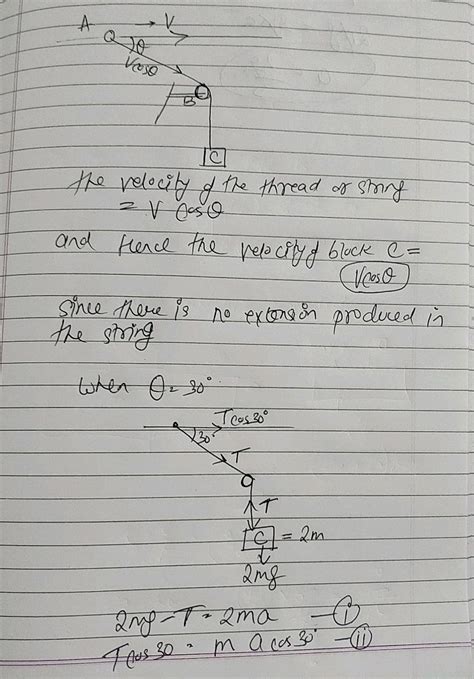 A → V
Q θ
Vcosθ
B
C
the velocity of the thread or string
= V Cosθ
and Hence the velocity of block C =
Vcosθ
since there is no extension produced in
the string
When θ = 30°
Tcos30°
30°
T
T
C = 2m
2mg
2mg - T = 2ma —(i)
Tcos30 = m a cos30° —(ii)